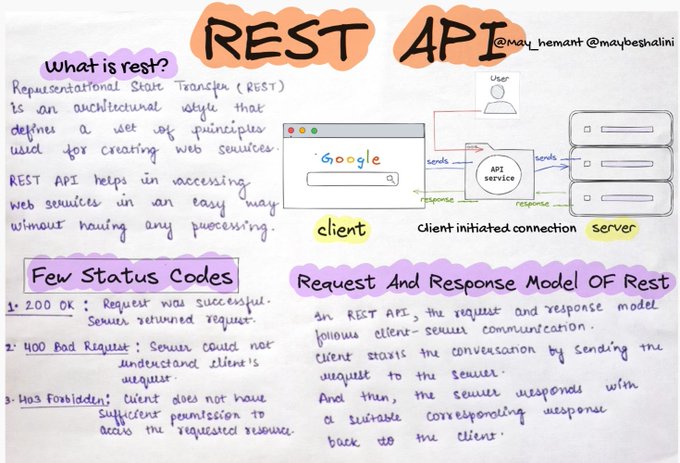 REST API
@May_hemant @maybeshalini
What is rest?
Representational State Transfer (REST)
is an architectural style that
defines a set of principles
used for creating web services.
REST API helps in accessing
web services in an easy way
without having any processing.
User
Google
sends
API
service
sends
response
response
client
Client initiated connection
server
Few Status Codes
1. 200 OK : Request was successful.
Server returned request.
2. 400 Bad Request : Server could not
understand client's
request.
3. 403 Forbidden : Client does not have
sufficient permission to
access the requested resource.
Request And Response Model OF Rest
In REST API, the request and response model
follows client-server communication.
Client starts the conversation by sending the
request to the server.
And then, the server responds with
a suitable corresponding response
back to the client.